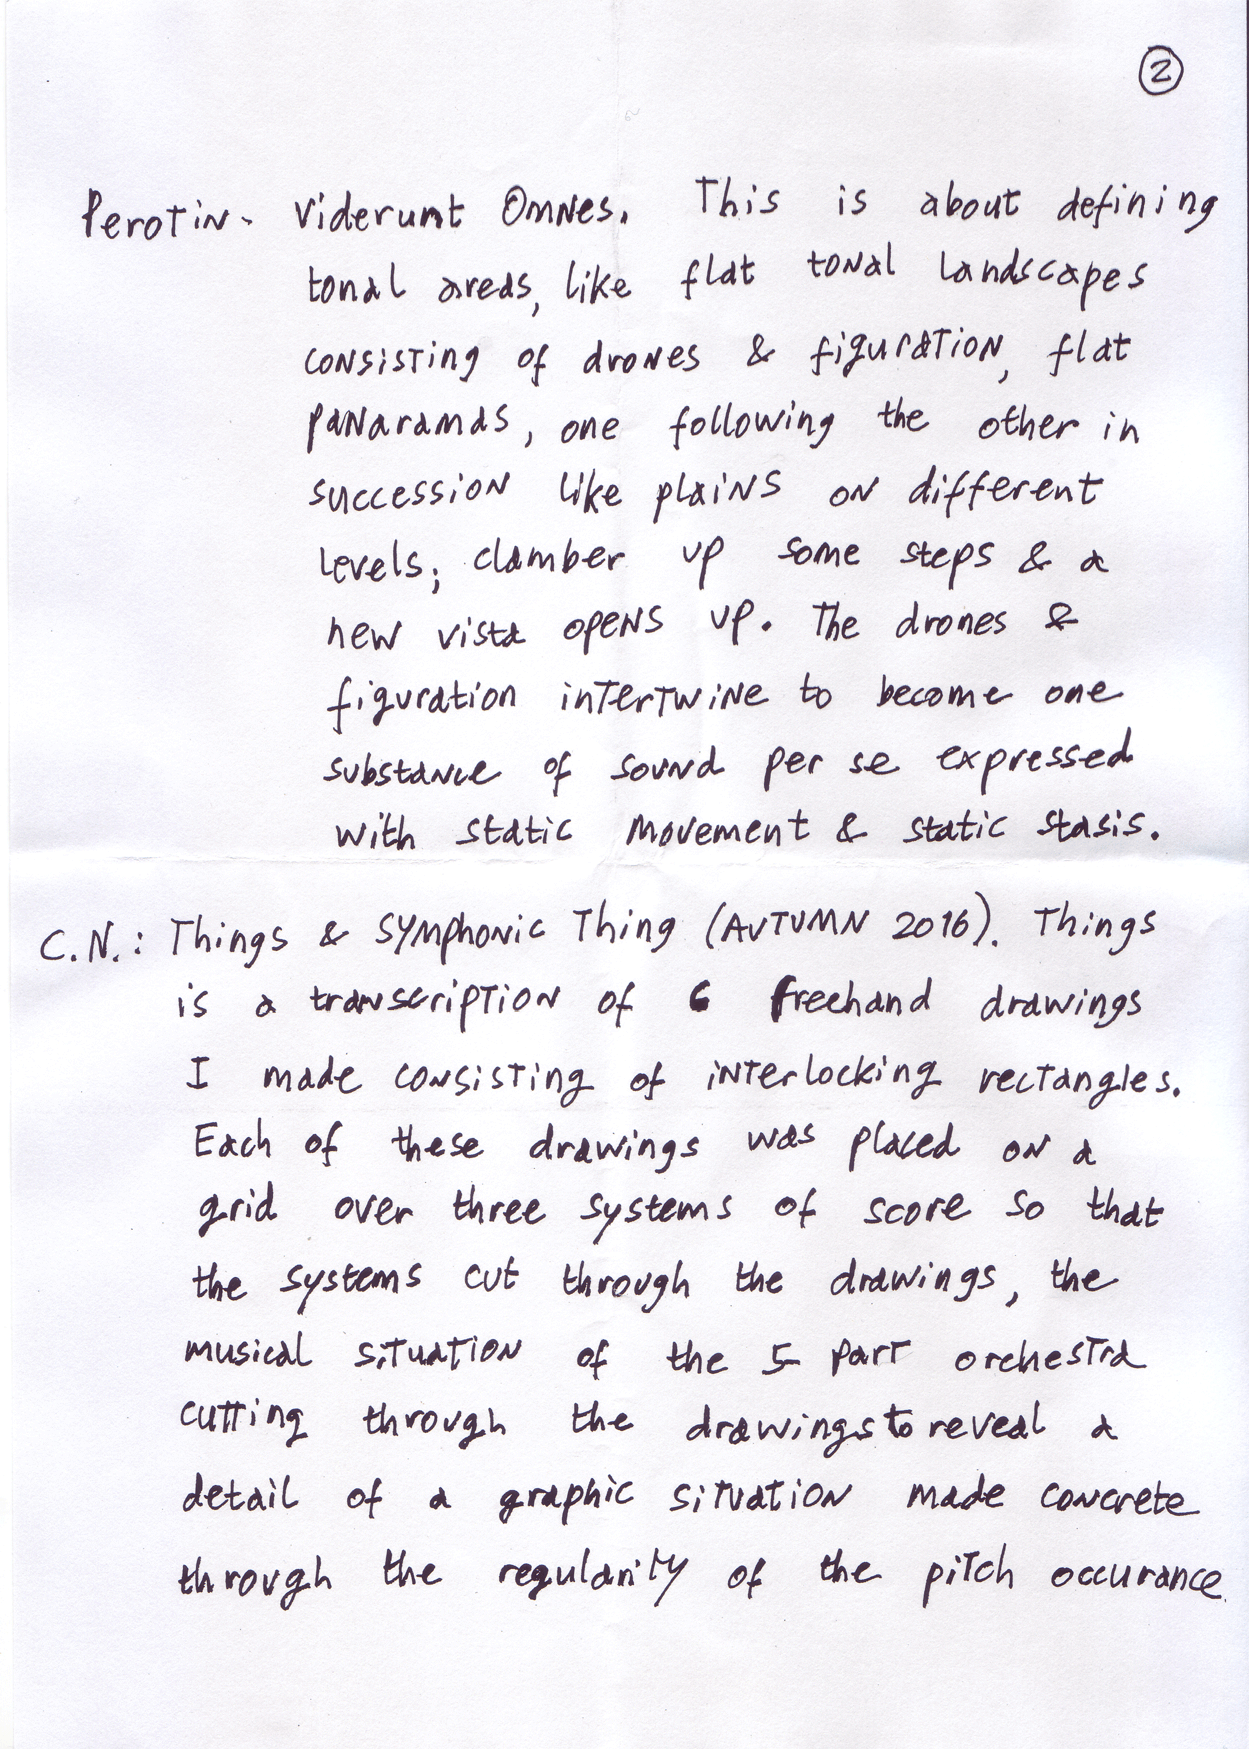 2
Perotin - Viderunt Omnes. This is about defining
tonal areas, like flat tonal landscapes
consisting of drones & figuration, flat
panaramas, one following the other in
succession like plains on different
levels; clamber up some steps & a
new vista opens up. The drones &
figuration intertwine to become one
substance of sound per se expressed
with static movement & static stasis.
C.N.: Things & Symphonic Thing (Autumn 2016). Things
is a transcription of 6 freehand drawings
I made consisting of interlocking rectangles.
Each of these drawings was placed on a
grid over three systems of score so that
the systems cut through the drawings, the
musical situation of the 5 part orchestra
cutting through the drawings to reveal a
detail of a graphic situation made concrete
through the regularity of the pitch occurance.